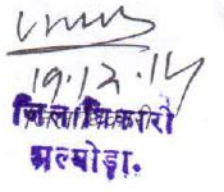 19.12.14
जिलाधिकारी
अल्मोड़ा.